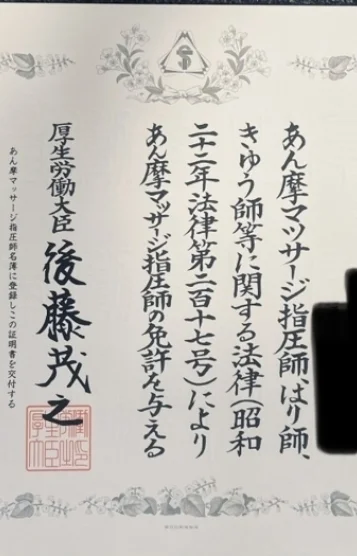 あん摩マツサージ指圧師、はり師、
きゆう師等に関する法律(昭和
二十二年法律第二百十七号)により
あん摩マツサージ指圧師の免許を与える
厚生労働大臣 後藤茂之
あん摩マッサージ指圧師名簿に登録しこの証明書を交付する